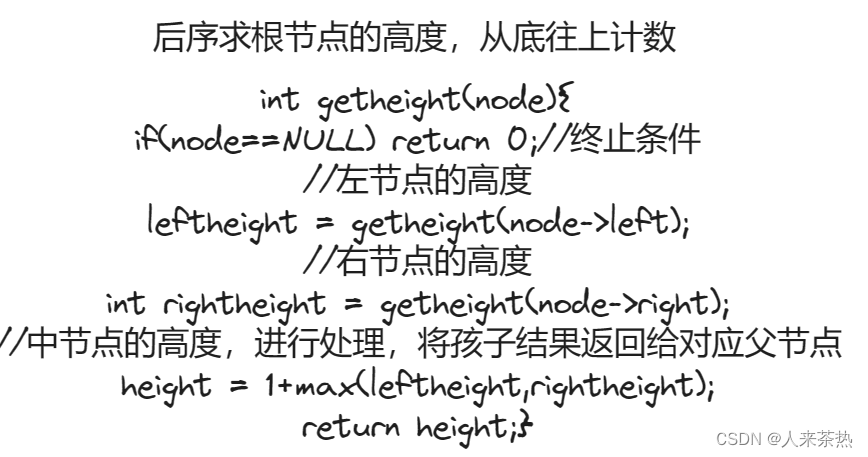 后序求根节点的高度，从底往上计数
int getheight(node){
if(node==NULL) return 0;//终止条件
//左节点的高度
leftheight = getheight(node->left);
//右节点的高度
int rightheight = getheight(node->right);
//中节点的高度，进行处理，将孩子结果返回给对应父节点
height = 1+max(leftheight,rightheight);
return height;}
CSDN @人来茶热